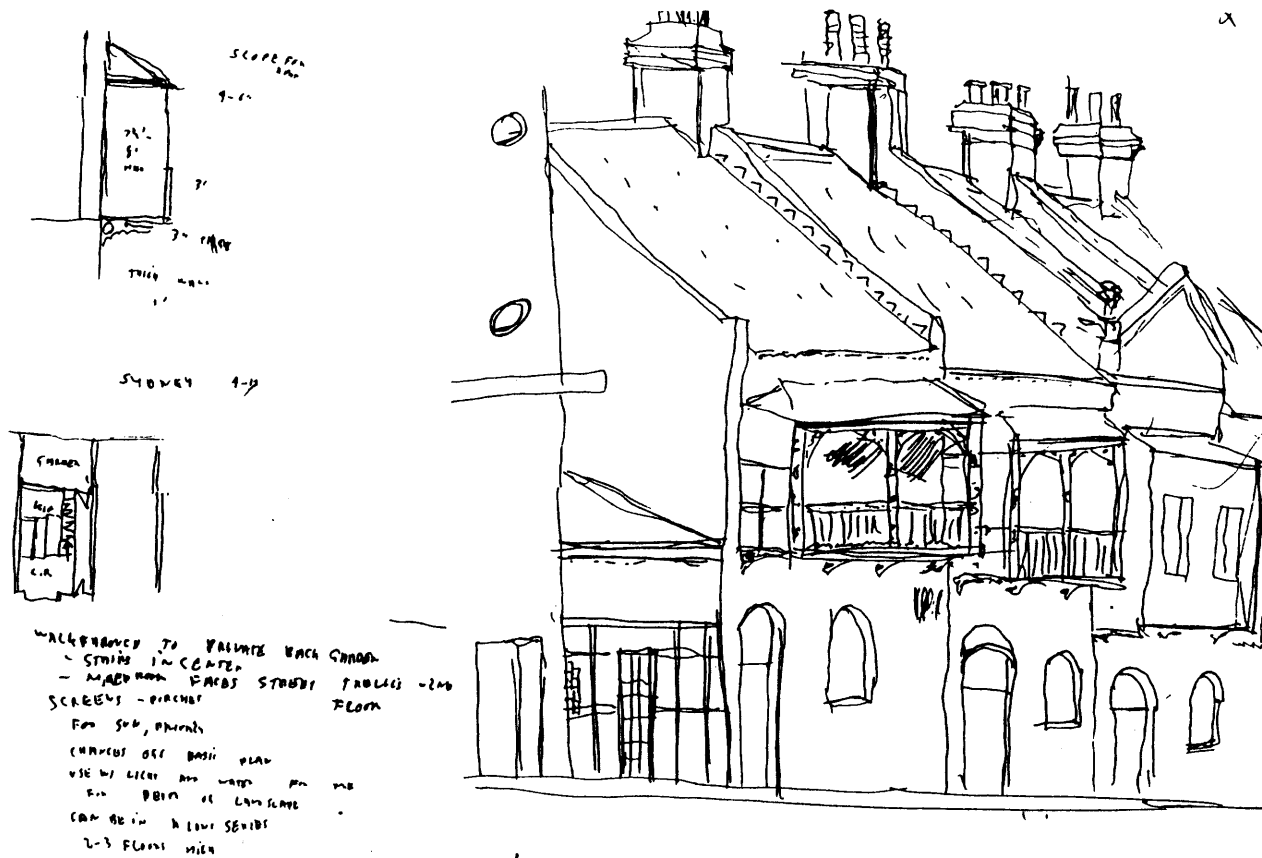 SLOPE FOR
4-6"
7½'-
8'
3'
3"
THICK WALL
1'
SYDNEY 4-17
GARDEN
KIT
L.R
WALKTHROUGH TO PRIVATE BACK GARDEN
- STAIRS IN CENTER
- FACES STREET -2ND
SCREENS - PORCHES FLOOR
FOR SUN, PRIVACY
CHANGES OFF BASIC PLAN
USE W/ LIGHT AND WATER FOR ME
FOR OF LANDSCAPE
CAN BE IN A LONG SERIES
2-3 FLOORS HIGH